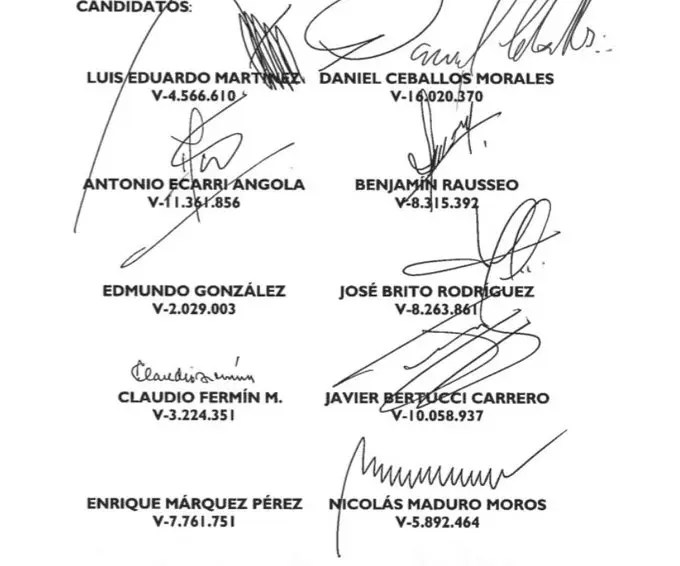 CANDIDATOS:
Daniel Ceballos
LUIS EDUARDO MARTÍNEZ DANIEL CEBALLOS MORALES
V-4.566.610 V-16.020.370
ANTONIO ECARRI ANGOLA BENJAMÍN RAUSSEO
V-11.361.856 V-8.315.392
EDMUNDO GONZÁLEZ JOSÉ BRITO RODRÍGUEZ
V-2.029.003 V-8.263.861
Claudio Fermín
CLAUDIO FERMÍN M. JAVIER BERTUCCI CARRERO
V-3.224.351 V-10.058.937
ENRIQUE MÁRQUEZ PÉREZ NICOLÁS MADURO MOROS
V-7.761.751 V-5.892.464